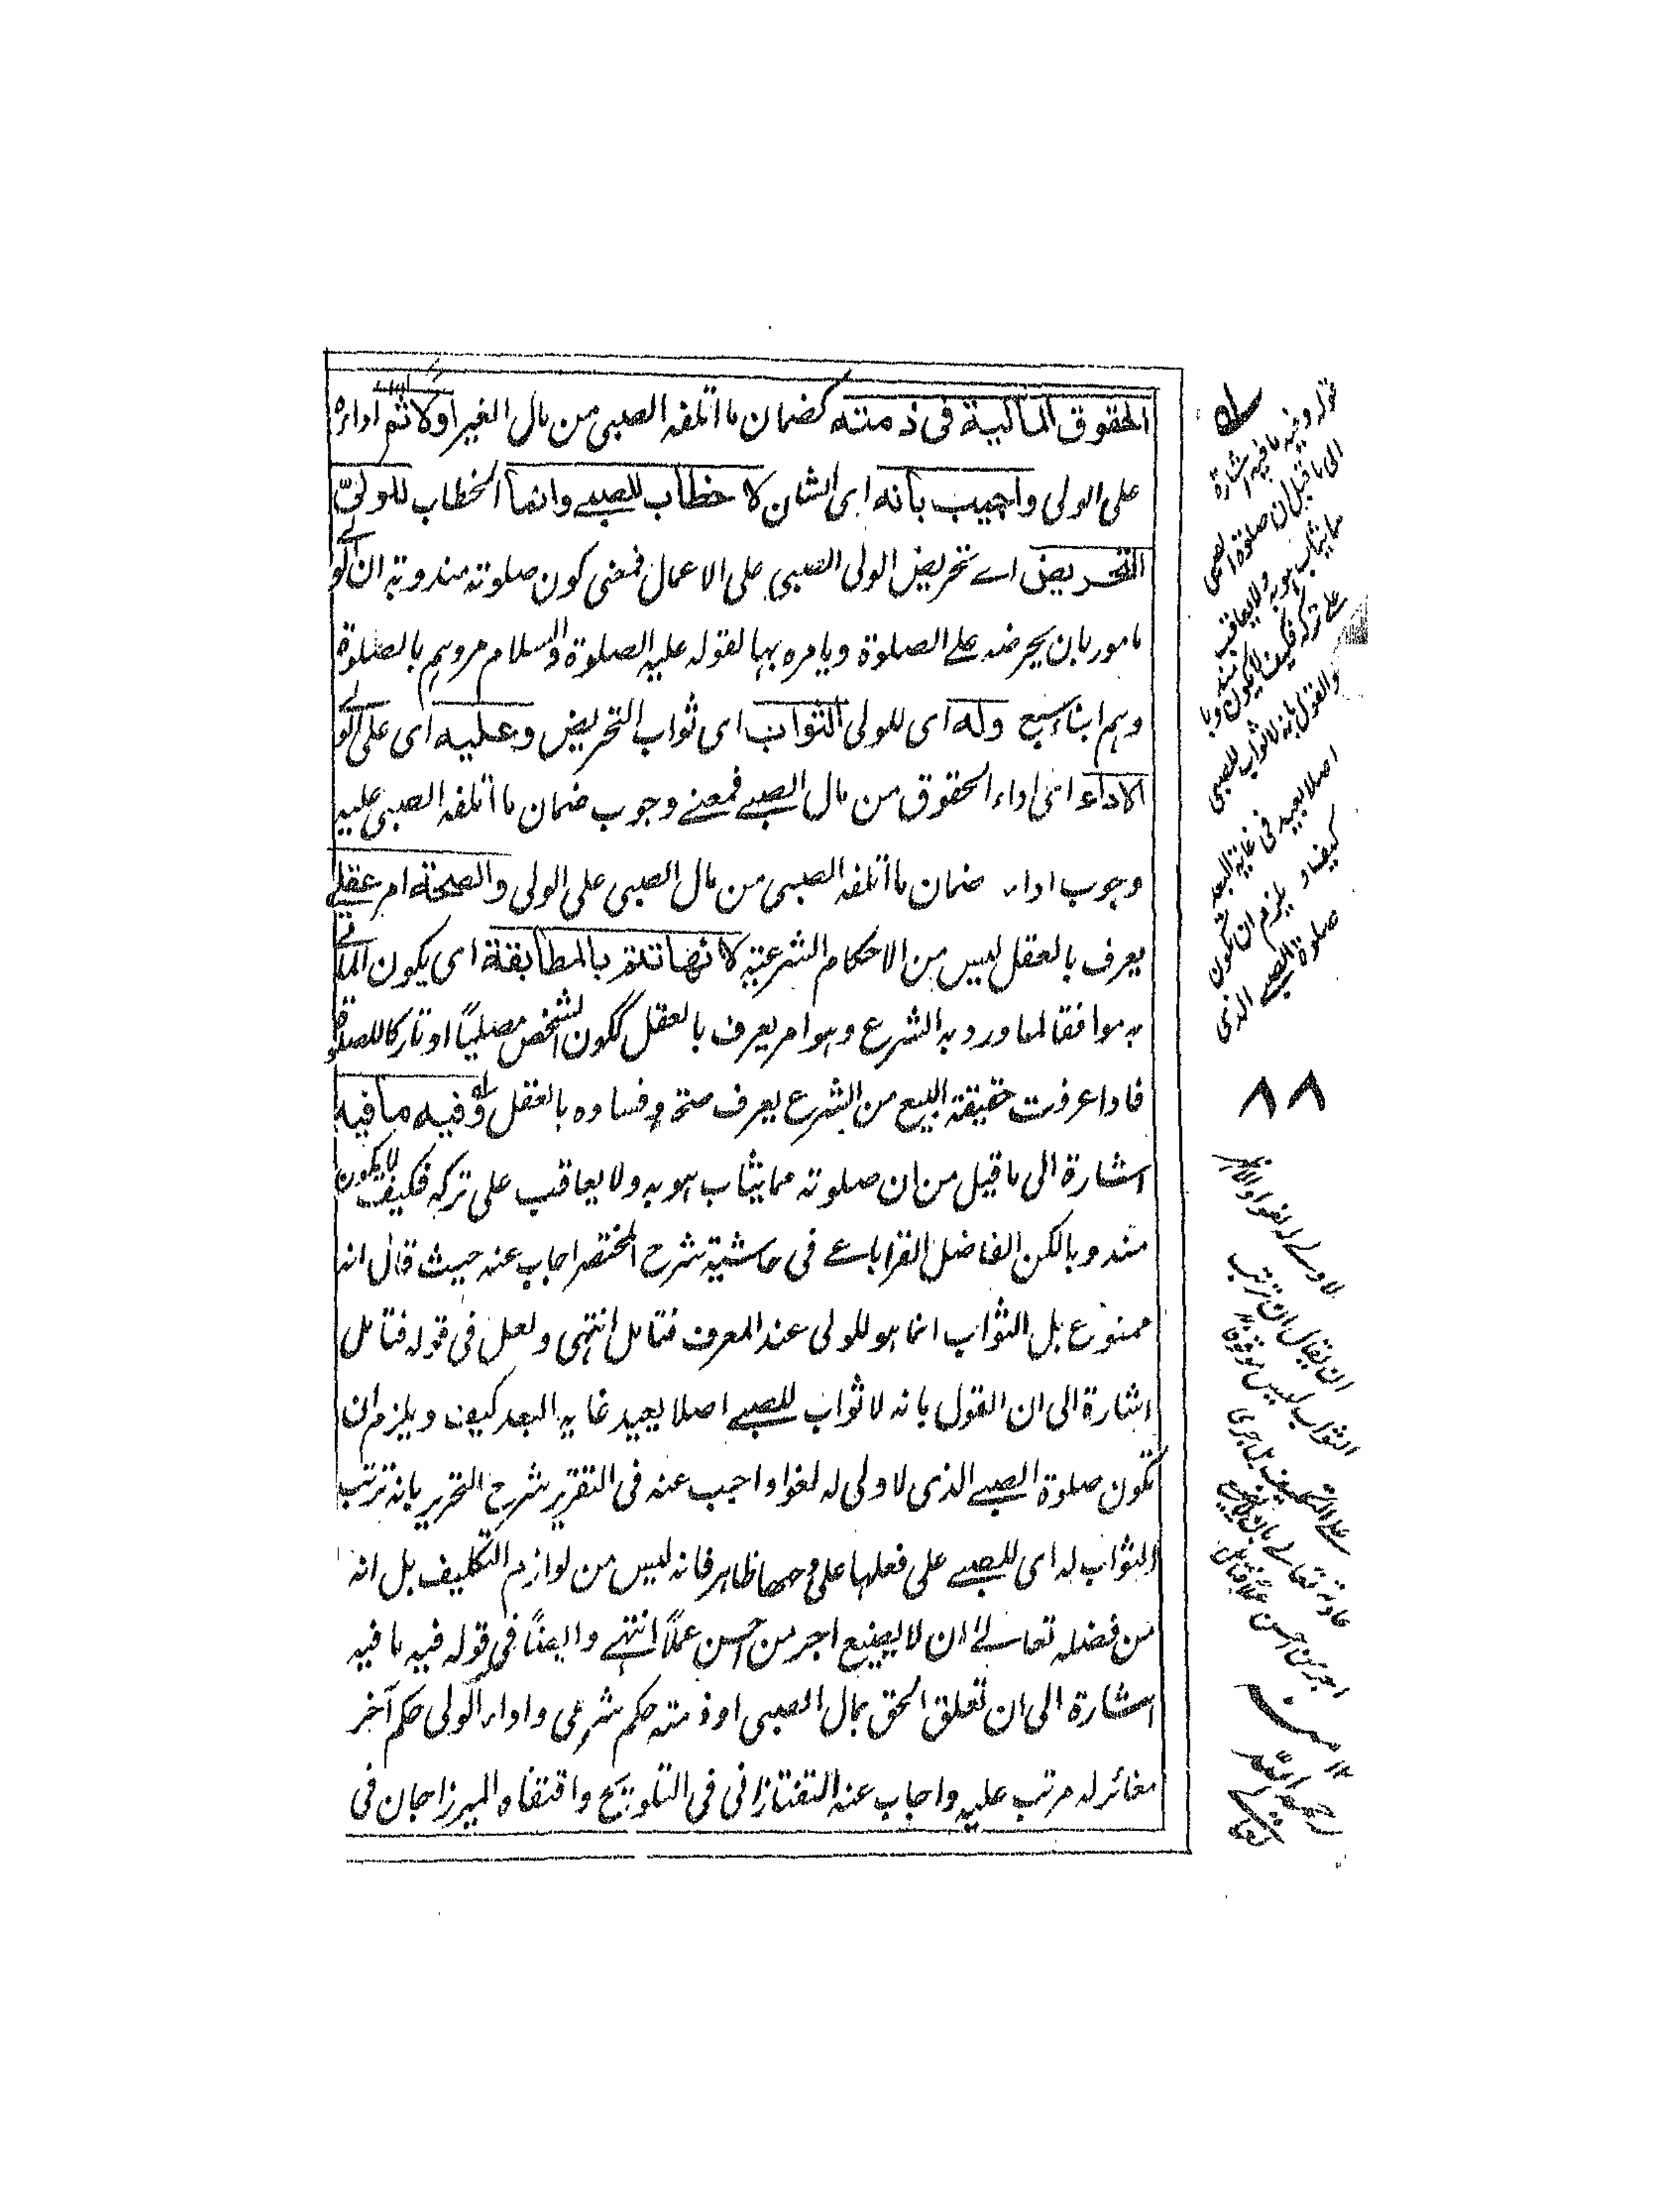 الحقوق المالية فى ذمته كضمان ما اتلفه الصبى من مال الغير اولا ثم اداؤه
على الولى واجيب بانه اى الشان لا خطاب للصبى وانما الخطاب للولىّ
التحريض اے تحريض الولى الصبى على الاعمال فمعنى كون صلوته مندوبة ان الو
مامور بان يحرضه على الصلوة ويامره بها لقوله عليه الصلوة والسلام مروهم بالصلوة
وهم ابناء سبع وله اى للولى الثواب اى ثواب التحريض وعليه اى على الو
الاداء اى اداء الحقوق من مال الصبى فمعنى وجوب ضمان ما اتلفه الصبى عليه
وجوب اداء ضمان ما اتلفه الصبى من مال الصبى على الولى والصحة امر عقلے
يعرف بالعقل ليس من الاحكام الشرعية لانها تتم بالمطابقة اى يكون الماتى
به موافقا لما ورد به الشرع وهو امر يعرف بالعقل ككون الشخص مصلياً او تاركا للصلوة
فاذا عرفت حقيقة البيع من الشرع يعرف صحته وفساده بالعقل وفيه ما فيه
اشارة الى ما قيل من ان صلوته مما يثاب هو به ولا يعاقب على تركه فكيف لا يكون
مندوبا لكن الفاضل القراباغے فى حاشية شرح المختصر اجاب عنه حيث قال انه
ممنوع بل الثواب انما هو للولى عند المعرف فتامل انتهى ولعل فى قوله فتامل
اشارة الى ان القول بانه لا ثواب للصبے اصلا بعيد غاية البعد كيف ويلزم ان
تكون صلوة الصبے الذى لا ولى له لغوا واجيب عنه فى التقرير شرح التحرير بانه ترتب
الثواب له اى للصبے على فعلها على وجهها ظاهر فانه ليس من لوازم التكليف بل انه
من فضله تعالے ان لا يضيع اجر من احسن عملاً انتهے وايضًا فى قوله فيه ما فيه
اشارة الى ان تعلق الحق بمال الصبى او ذمته حكم شرعى واداء الولى حكم آخر
مغائر له مرتب عليه واجاب عنه التفتازانى فى التلويح واقتفاه الميرزا جان فى
قوله وفيه ما فيه اشارة
الى ما قيل ان صلوة الصبى
مما يثاب هو به ولا يعاقب
على تركه فكيف لا يكون مندوبا
والقول بانه لا ثواب للصبى
اصلا بعيد فى غاية البعد
كيف ويلزم ان تكون
صلوة الصبے الذى
٨٨
لا ولے له لغوا
ان يقال ان ترتب
الثواب ليس
على التكليف بل جرى
عادته تعالے بان لا يضيع
اجر من احسن عملا
١٢ من
رحمه الله
تعالى